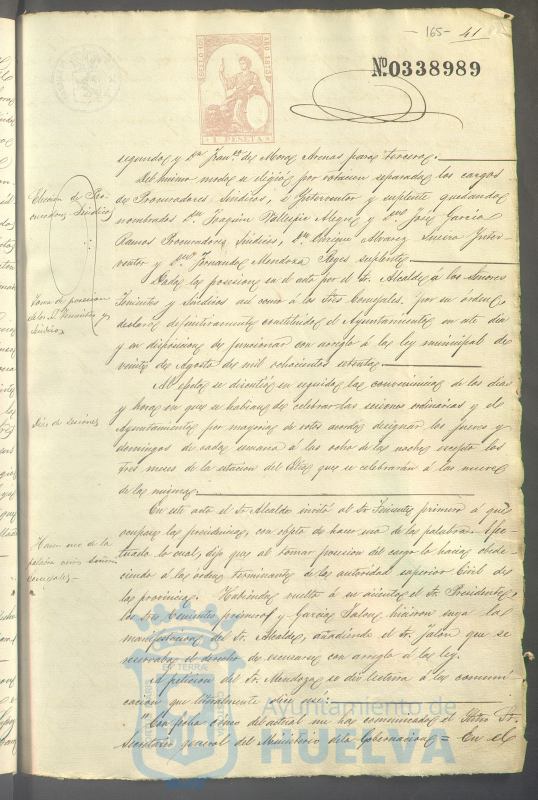 -165- 41
SELLO 10º AÑO 1875
1 PESETA
Nº 0338989
segundo y Dn. Franco. de Mora Arenas para tercero.
Del mismo modo se eligió por votacion separada los cargos
de Procuradores Sindicos, é Interventor y suplente quedando
nombrados Dn. Joaquin Vallespin Alegre y Dn. José Garcia
Ramos Procuradores Sindicos, Dn. Enrique Alvarez Interventor
y Dn. Fernando Mendoza Reyes suplente.
Dada la posesion en el acto por el Sr. Alcalde á los Señores
Tenientes y Sindicos asi como á los Sres. Concejales por su órden,
declaró definitivamente constituido el Ayuntamiento en este dia
y en disposicion de funcionar con arreglo á la ley municipal de
veinte de Agosto de mil ochocientos setenta.
se discutió en seguida la conveniencia de los dias
y horas en que se habian de celebrar las sesiones ordinarias y el
Ayuntamiento por mayoria de votos acordó designar los jueves y
domingos de cada semana á las ocho de la noche escepto los
tres meses de la estacion del que se celebrarán á las nueve
de la misma.
En este acto el Sr. Alcalde invitó al Sr. Teniente primero á que
ocupara la presidencia, con objeto de hacer uso de la palabra. Efectuado
lo cual, dijo que al tomar posesion del cargo lo hacia obedeciendo
á las ordenes terminantes de la autoridad superior Civil de
la provincia. Habiendo vuelto á su asiento el Sr. Presidente,
los Sres. Tenientes primero y Garcia Jalon hicieron suya la
manifestacion del Sr. Alcalde, añadiendo el Sr. Jalon que se
reservaba el derecho de escusarse con arreglo á la ley.
A peticion del Sr. Mendoza se dió lectura á la comunicacion
que literalmente dice asi:
"Con fecha cinco del actual me ha comunicado el Iltmo. Sr.
Secretario general del Ministerio de la Gobernacion = En el
Eleccion de Procuradores
Sindicos
Toma de posesion
de los S. Tenientes y
Sindicos
Dias de sesiones
Hacen uso de la
palabra varios Señores
concejales
Ayuntamiento de
HUELVA